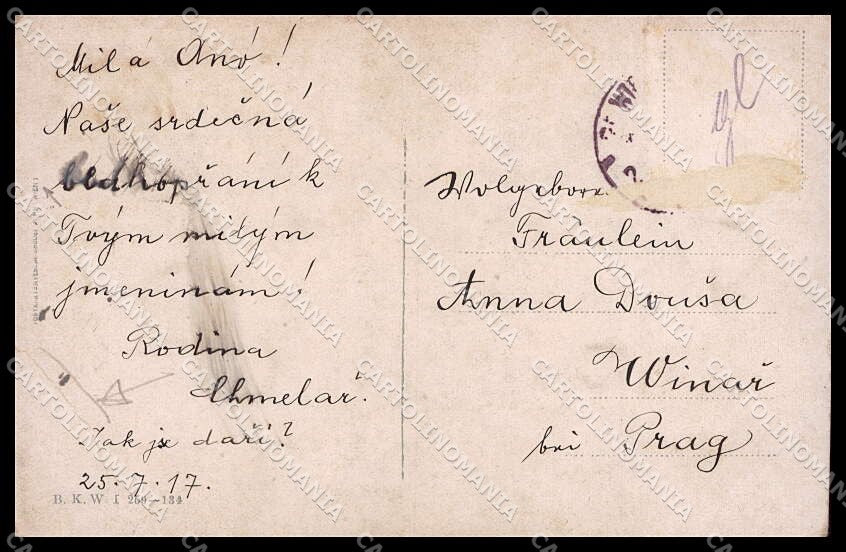 Milá Anó!
Naše srdečná
blahopřání k
Tvým milým
jmeninám!
Rodina
Chmelař.
Jak je daří?
25.7.17.
B. K. W. I 259-134
Fräulein
Anna Douša
Winař
bei Prag
CARTOLINOMANIA